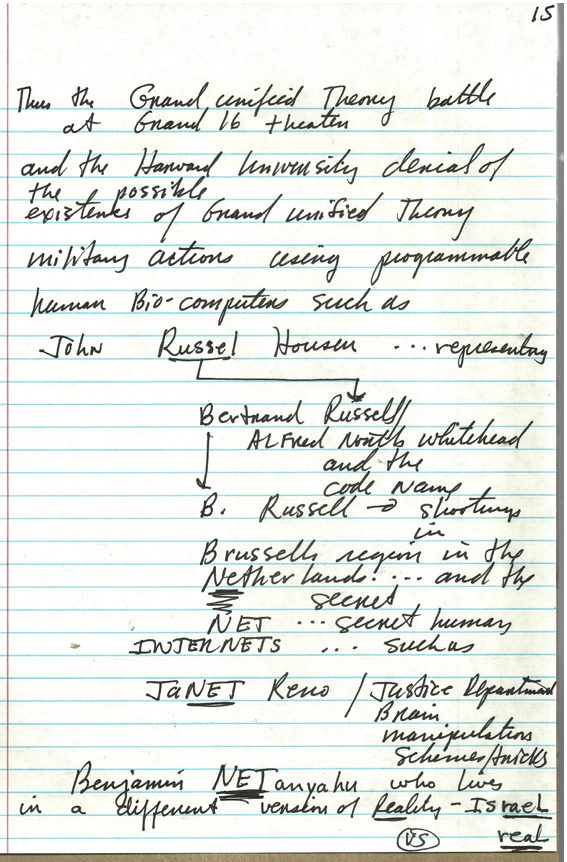 15
Thus the Grand unified Theory battle
at Grand 16 theater
and the Harvard University denial of
the possible
existence of Grand unified Theory
military actions using programmable
human Bio-computers such as
John Russel Houser ... representing
Bertrand Russell/
Alfred North Whitehead
and the
code name
B. Russell → shootings
in
Brussells region in the
Netherlands! ... and the
secret
NET ... secret human
INTERNETS ... such as
JaNET Reno / Justice Department
Brain
manipulation
Schemes/tricks
Benjamin NETanyahu who lives
in a different version of Reality - Israel
VS real